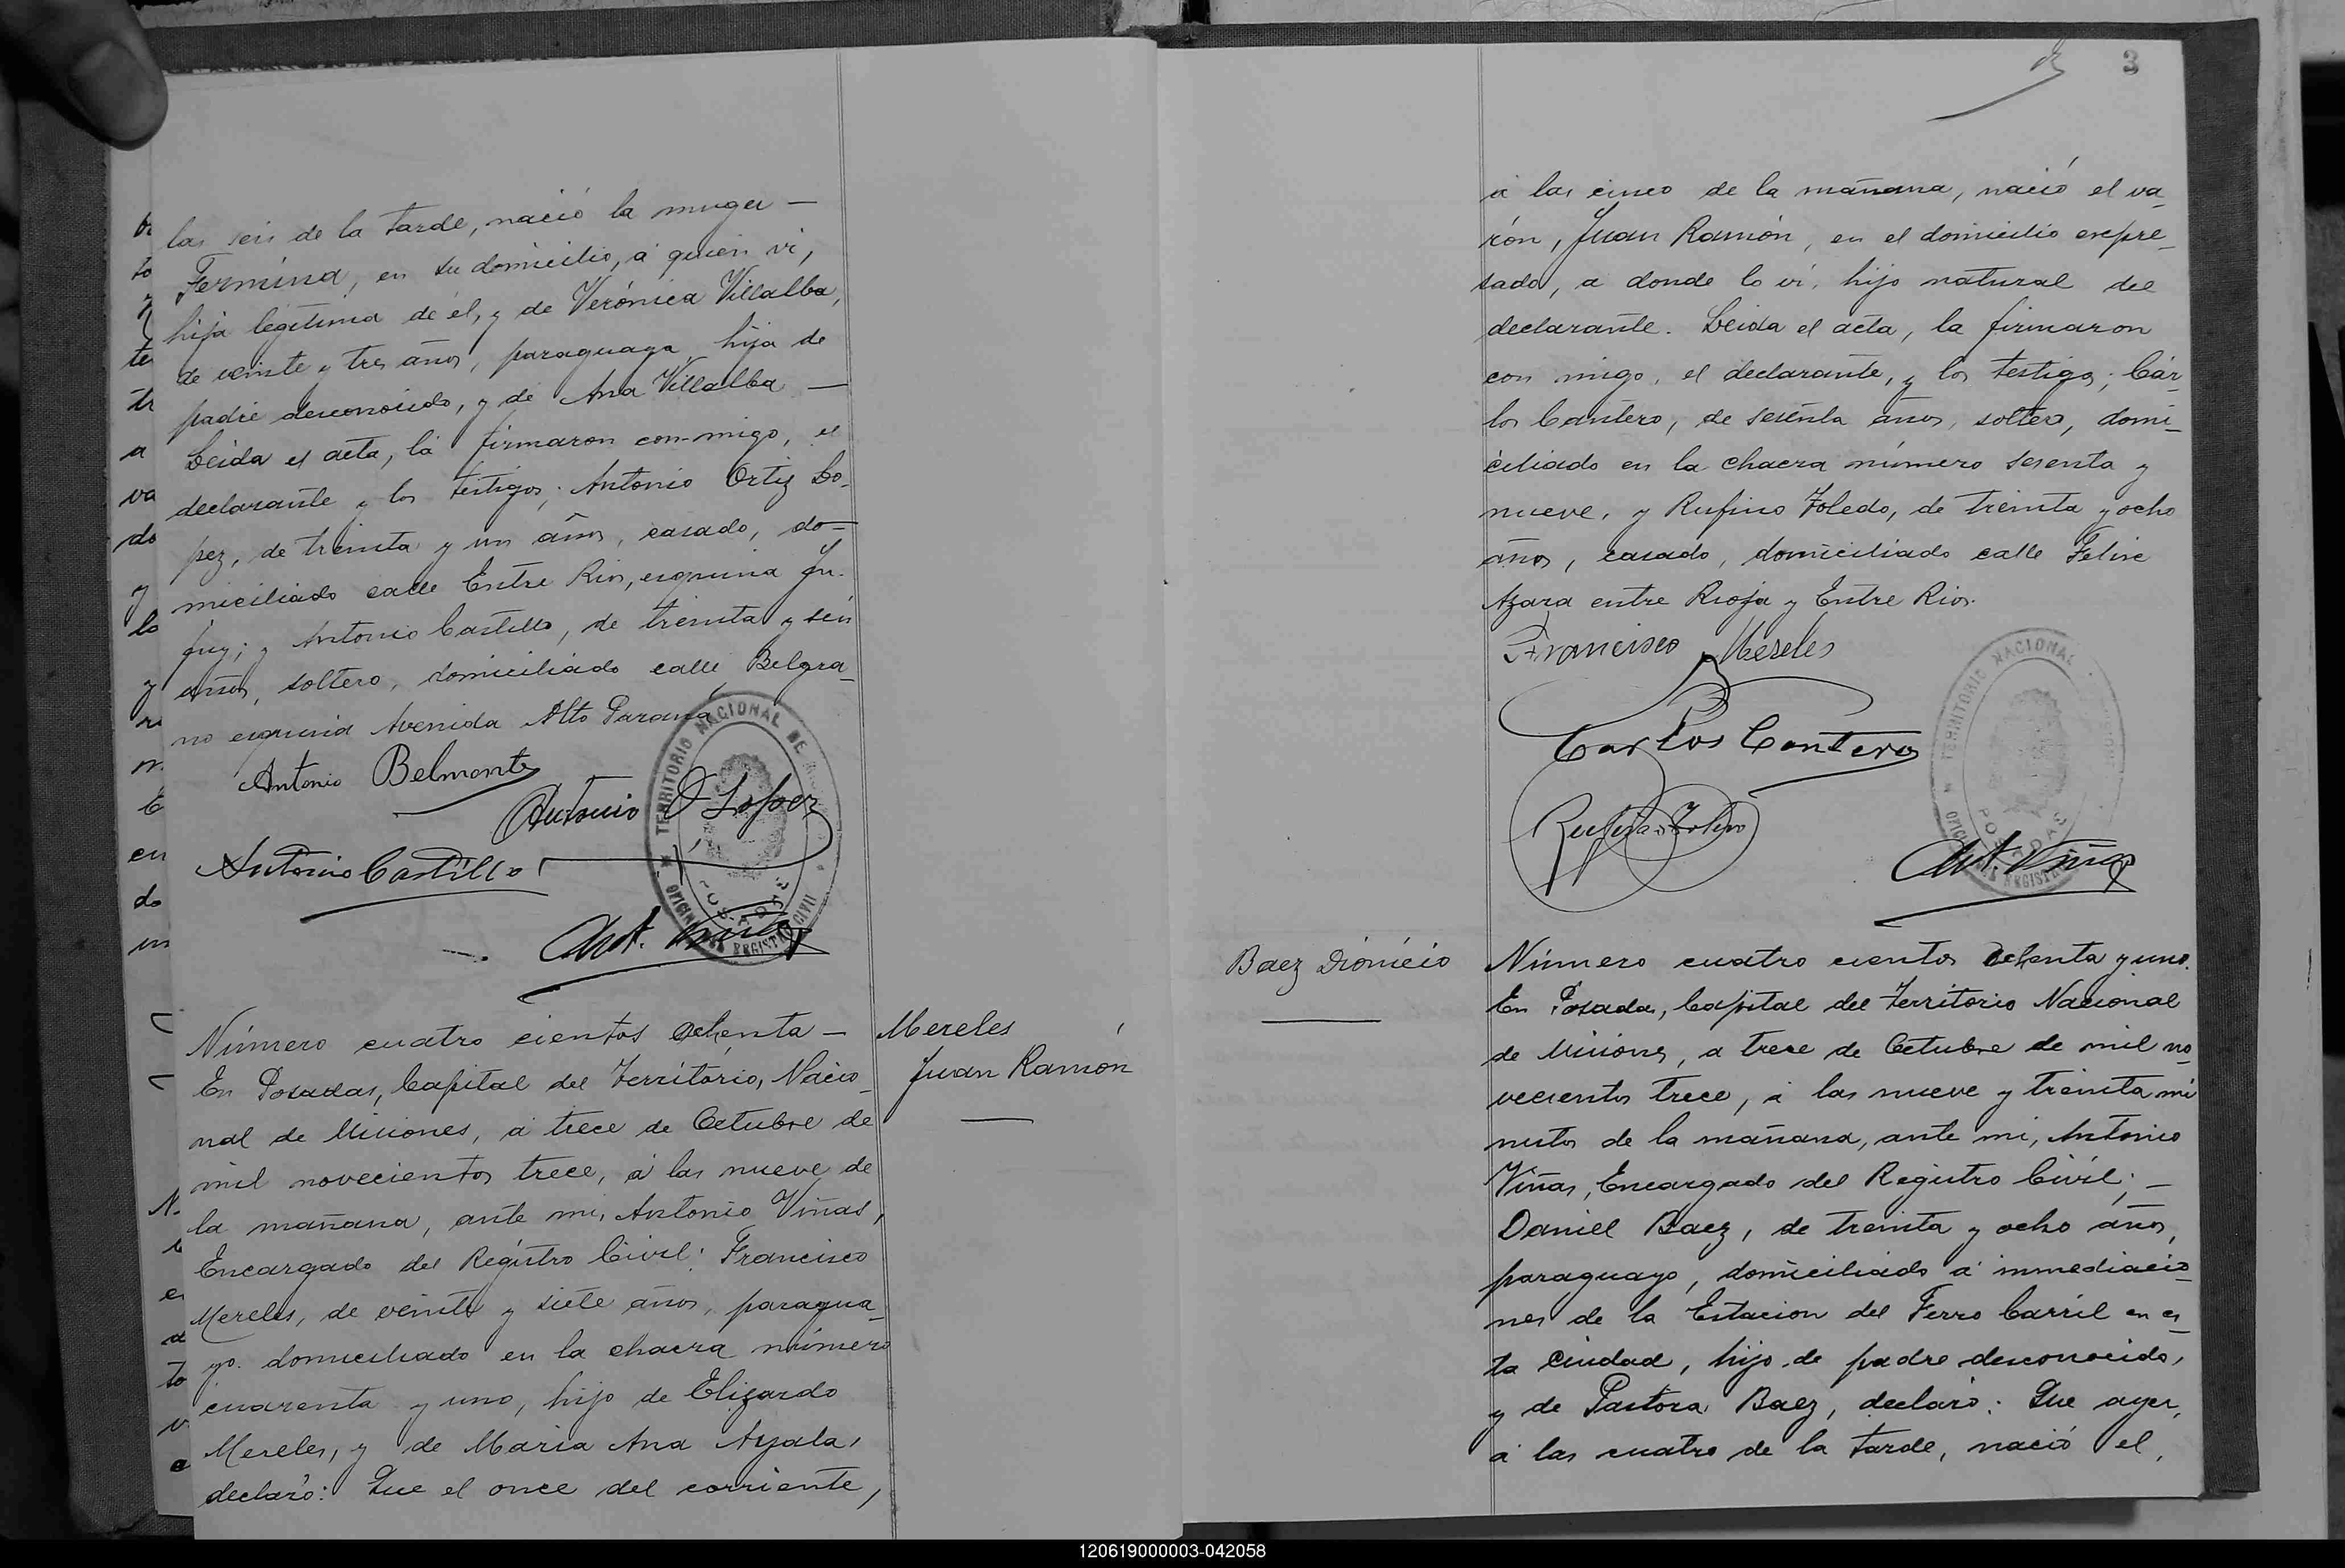 las seis de la tarde, nació la muger —
Fermina, en su domicilio, á quien vi,
hija legítima de él, y de Verónica Villalba,
de veinte y tres años, paraguaya, hija de
padre desconocido, y de Ana Villalba —
Leida el acta, la firmaron con-migo, el
declarante y los testigos; Antonio Ortiz Lo-
pez, de treinta y un años, casado, do-
miciliado calle Entre Rios, esquina Ju-
juy; y Antonio Castillo, de treinta y seis
años, soltero, domiciliado calle Belgra-
no esquina Avenida Alto Paraná
Antonio Belmonte
Antonio O Lopez
Antonio Castillo
Ant. Viñas
TERRITORIO NACIONAL DE
POSADAS
OFICINA REGISTRO CIVIL
Número cuatro cientos ochenta —
En Posadas, Capital del Territorio, Nacio-
nal de Misiones, á trece de Octubre de
mil novecientos trece, á las nueve de
la mañana, ante mi, Antonio Viñas,
Encargado del Registro Civil: Francisco
Mereles, de veinte y siete años, paragua-
yo. domiciliado en la chacra número
cuarenta y uno, hijo de Elizardo
Mereles, y de Maria Ana Ayala,
declaró: Que el once del corriente,
Mereles
Juan Ramón
3
á las cinco de la mañana, nació el va-
rón, Juan Ramón, en el domicilio expre-
sado, a donde lo vi, hijo natural del
declarante. Leida el acta, la firmaron
con migo, el declarante, y los testigos; Cár-
los Cantero, de sesenta años, soltero, domi-
ciliado en la chacra número sesenta y
nueve, y Rufino Toledo, de treinta y ocho
años, casado, domiciliado calle Felix
Azara entre Rioja y Entre Rios.
Francisco Mereles
Carlos Cantero
Rufino Toledo
Ant. Viñas
TERRITORIO NACIONAL
POSADAS
REGISTRO
Baez Dionicio
Número cuatro cientos ochenta y uno.
En Posadas, Capital del Territorio Nacional
de Misiones, a trece de Octubre de mil no-
vecientos trece, á las nueve y treinta mi
nutos de la mañana, ante mi, Antonio
Viñas, Encargado del Registro Civil; —
Daniel Baez, de treinta y ocho años,
paraguayo, domiciliado á inmediacio-
nes de la Estacion del Ferro Carril en es-
ta Ciudad, hijo de padre desconocido,
y de Pastora Baez, declaró: Que ayer,
á las cuatro de la tarde, nació el,
120619000003-042058